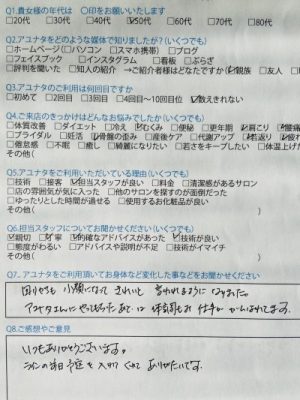 Q1.貴女様の年代は ○印をお願いいたします
□20代 □30代 □40代 ☑50代 □60代 □70代 □80代
Q2.アユナタをどのような媒体で知りましたか?(いくつでも)
□ホームページ(□パソコン □スマホ携帯) □ブログ
□フェイスブック □インスタグラム □看板 □ぶらざ
□評判を聞いた □知人の紹介 →ご紹介者様はどなたですか(☑親族 □友人
Q3.アユナタのご利用は何回目ですか
□初めて □2回目 □3回目 □4回目~10回目位 ☑数えきれない
Q4.ご来店のきっかけはどんなお悩みでしたか(いくつでも)
□体質改善 □ダイエット □冷え ☑むくみ □便秘 □更年期 ☑肩こり ☑腰痛
□ブライダル □妊活 ☑骨盤の歪み □産後ケア □代謝アップ ☑若返り ☑疲
□倦怠感 □不眠 □癒し □綺麗になりたい □若さをキープしたい □体温上げ
その他(
Q5.アユナタをご利用いただいている理由(いくつでも)
□技術 □接客 ☑担当スタッフが良い □料金 □清潔感があるサロン
□店の雰囲気が気に入った □他のサロンを探すのが面倒だから
□ゆったりとした時間が過せる □使用するお化粧品が良い
□その他( )
Q6.担当スタッフについてお聞かせください(いくつでも)
☑親切 ☑丁寧 ☑的確なアドバイスがあった ☑技術が良い
□態度がわるい □アドバイスや説明が不足 □技術がイマイチ
その他( )
Q7.アユナタをご利用頂いてお身体など変化した事などをお聞かせください
回りからも 小顔になって きれいと 言われますようになりました。
アユナタさんに やってもらった あとは 体調も お仕事が
Q8.ご感想やご意見
いつもありがとうございます。
ラインの 当日 予定を 入れて くれて ありがたいです。